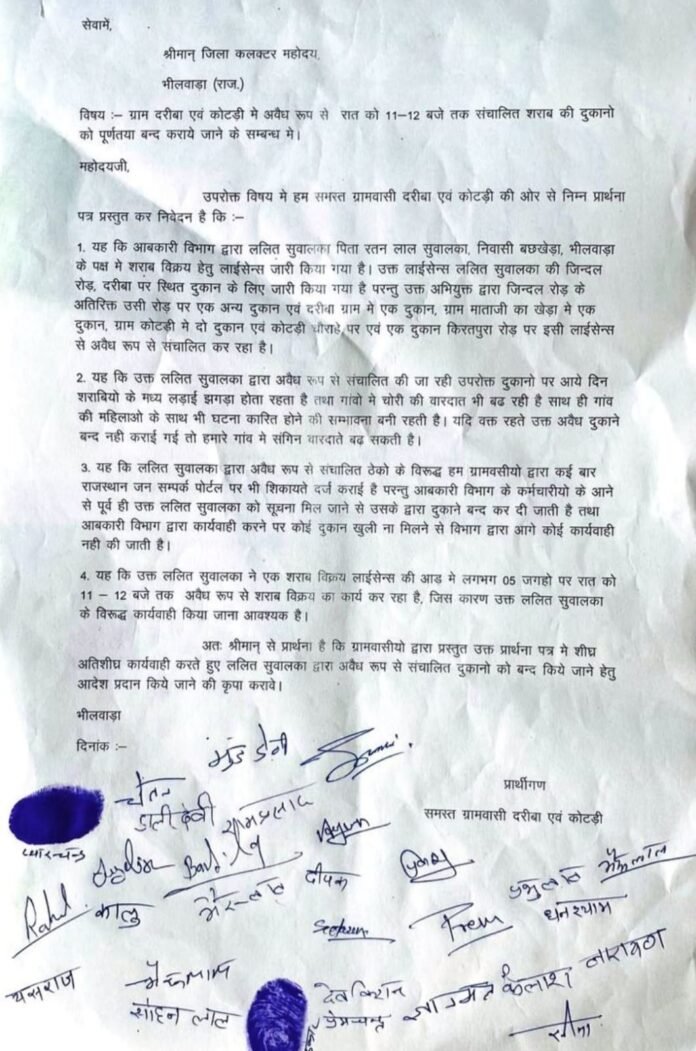 सेवामें,
श्रीमान् जिला कलक्टर महोदय,
भीलवाड़ा (राज.)
विषय :– ग्राम दरीबा एवं कोटड़ी मे अवैध रूप से रात को 11–12 बजे तक संचालित शराब की दुकानो
को पूर्णतया बन्द कराये जाने के सम्बन्ध मे।
महोदयजी,
उपरोक्त विषय मे हम समस्त ग्रामवासी दरीबा एवं कोटड़ी की ओर से निम्न प्रार्थना
पत्र प्रस्तुत कर निवेदन है कि :–
1. यह कि आबकारी विभाग द्वारा ललित सुवालका पिता रतन लाल सुवालका, निवासी बछखेड़ा, भीलवाड़ा
के पक्ष मे शराब विक्रय हेतु लाईसेन्स जारी किया गया है। उक्त लाईसेन्स ललित सुवालका की जिन्दल
रोड़, दरीबा पर स्थित दुकान के लिए जारी किया गया है परन्तु उक्त अभियुक्त द्वारा जिन्दल रोड़ के
अतिरिक्त उसी रोड़ पर एक अन्य दुकान एवं दरीबा ग्राम मे एक दुकान, ग्राम माताजी का खेड़ा मे एक
दुकान, ग्राम कोटड़ी मे दो दुकान एवं कोटड़ी चौराहे पर एवं एक दुकान किरतपुरा रोड़ पर इसी लाईसेन्स
से अवैध रूप से संचालित कर रहा है।
2. यह कि उक्त ललित सुवालका द्वारा अवैध रूप से संचालित की जा रही उपरोक्त दुकानो पर आये दिन
शराबियो के मध्य लड़ाई झगड़ा होता रहता है तथा गांवो मे चोरी की वारदात भी बढ रही है साथ ही गांव
की महिलाओ के साथ भी घटना कारित होने की सम्भावना बनी रहती है। यदि वक्त रहते उक्त अवैध दुकाने
बन्द नही कराई गई तो हमारे गांव मे संगिन वारदाते बढ़ सकती है।
3. यह कि ललित सुवालका द्वारा अवैध रूप से संचालित ठेको के विरूद्ध हम ग्रामवसीयो द्वारा कई बार
राजस्थान जन सम्पर्क पोर्टल पर भी शिकायते दर्ज कराई है परन्तु आबकारी विभाग के कर्मचारीयो के आने
से पूर्व ही उक्त ललित सुवालका को सूचना मिल जाने से उसके द्वारा दुकाने बन्द कर दी जाती है तथा
आबकारी विभाग द्वारा कार्यवाही करने पर कोई दुकान खुली ना मिलने से विभाग द्वारा आगे कोई कार्यवाही
नही की जाती है।
4. यह कि उक्त ललित सुवालका ने एक शराब विक्रय लाईसेन्स की आड मे लगभग 05 जगहो पर रात को
11 – 12 बजे तक अवैध रूप से शराब विक्रय का कार्य कर रहा है, जिस कारण उक्त ललित सुवालका
के विरूद्ध कार्यवाही किया जाना आवश्यक है।
अतः श्रीमान् से प्रार्थना है कि ग्रामवासीयो द्वारा प्रस्तुत उक्त प्रार्थना पत्र मे शीघ्र
अतिशीघ्र कार्यवाही करते हुए ललित सुवालका द्वारा अवैध रूप से संचालित दुकानो को बन्द किये जाने हेतु
आदेश प्रदान किये जाने की कृपा करावे।
भीलवाड़ा
दिनांक :–
प्रार्थीगण
समस्त ग्रामवासी दरीबा एवं कोटड़ी
चेतन
डाली देवी
Rahul
कालु
दीपक
Prem
घनश्याम
यसराज
सोहन लाल
देवकिशन
प्रेमचन्द्र
कैलाश नारायण